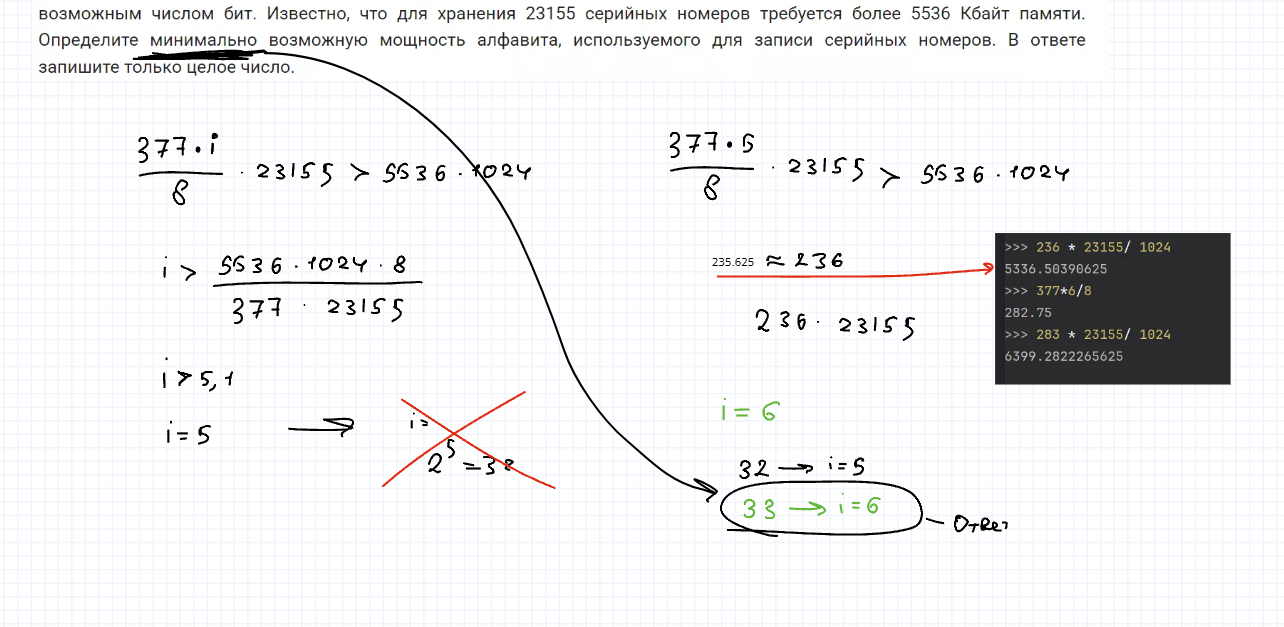 возможным числом бит. Известно, что для хранения 23155 серийных номеров требуется более 5536 Кбайт памяти.
Определите минимально возможную мощность алфавита, используемого для записи серийных номеров. В ответе
запишите только целое число.
377·i
8
· 23155 > 5536·1024
i >
5536·1024·8
377 · 23155
i > 5,1
i = 5
i =
2^5 = 32
377·5
8
· 23155 > 5536·1024
235.625 ≈ 236
236· 23155
>>> 236 * 23155/ 1024
5336.50390625
>>> 377*6/8
282.75
>>> 283 * 23155/ 1024
6399.2822265625
i = 6
32 → i=5
33 → i=6
Ответ